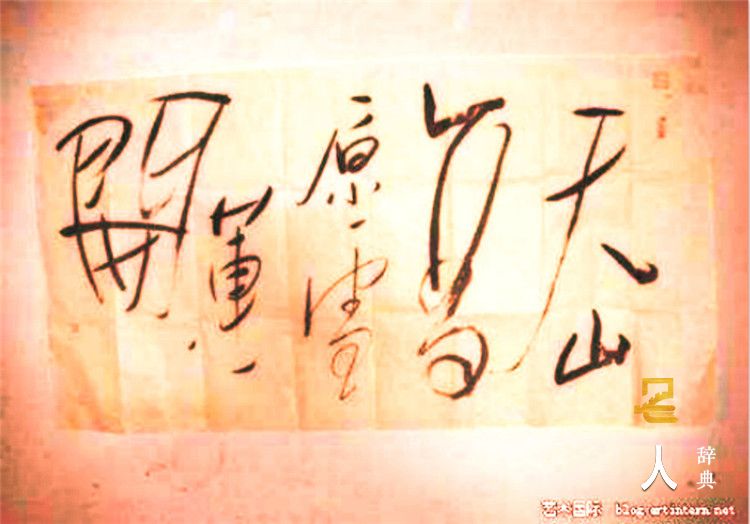 天山
高
原雪
蓮
開
人
辞典
艺术国际 blog.artintern.net